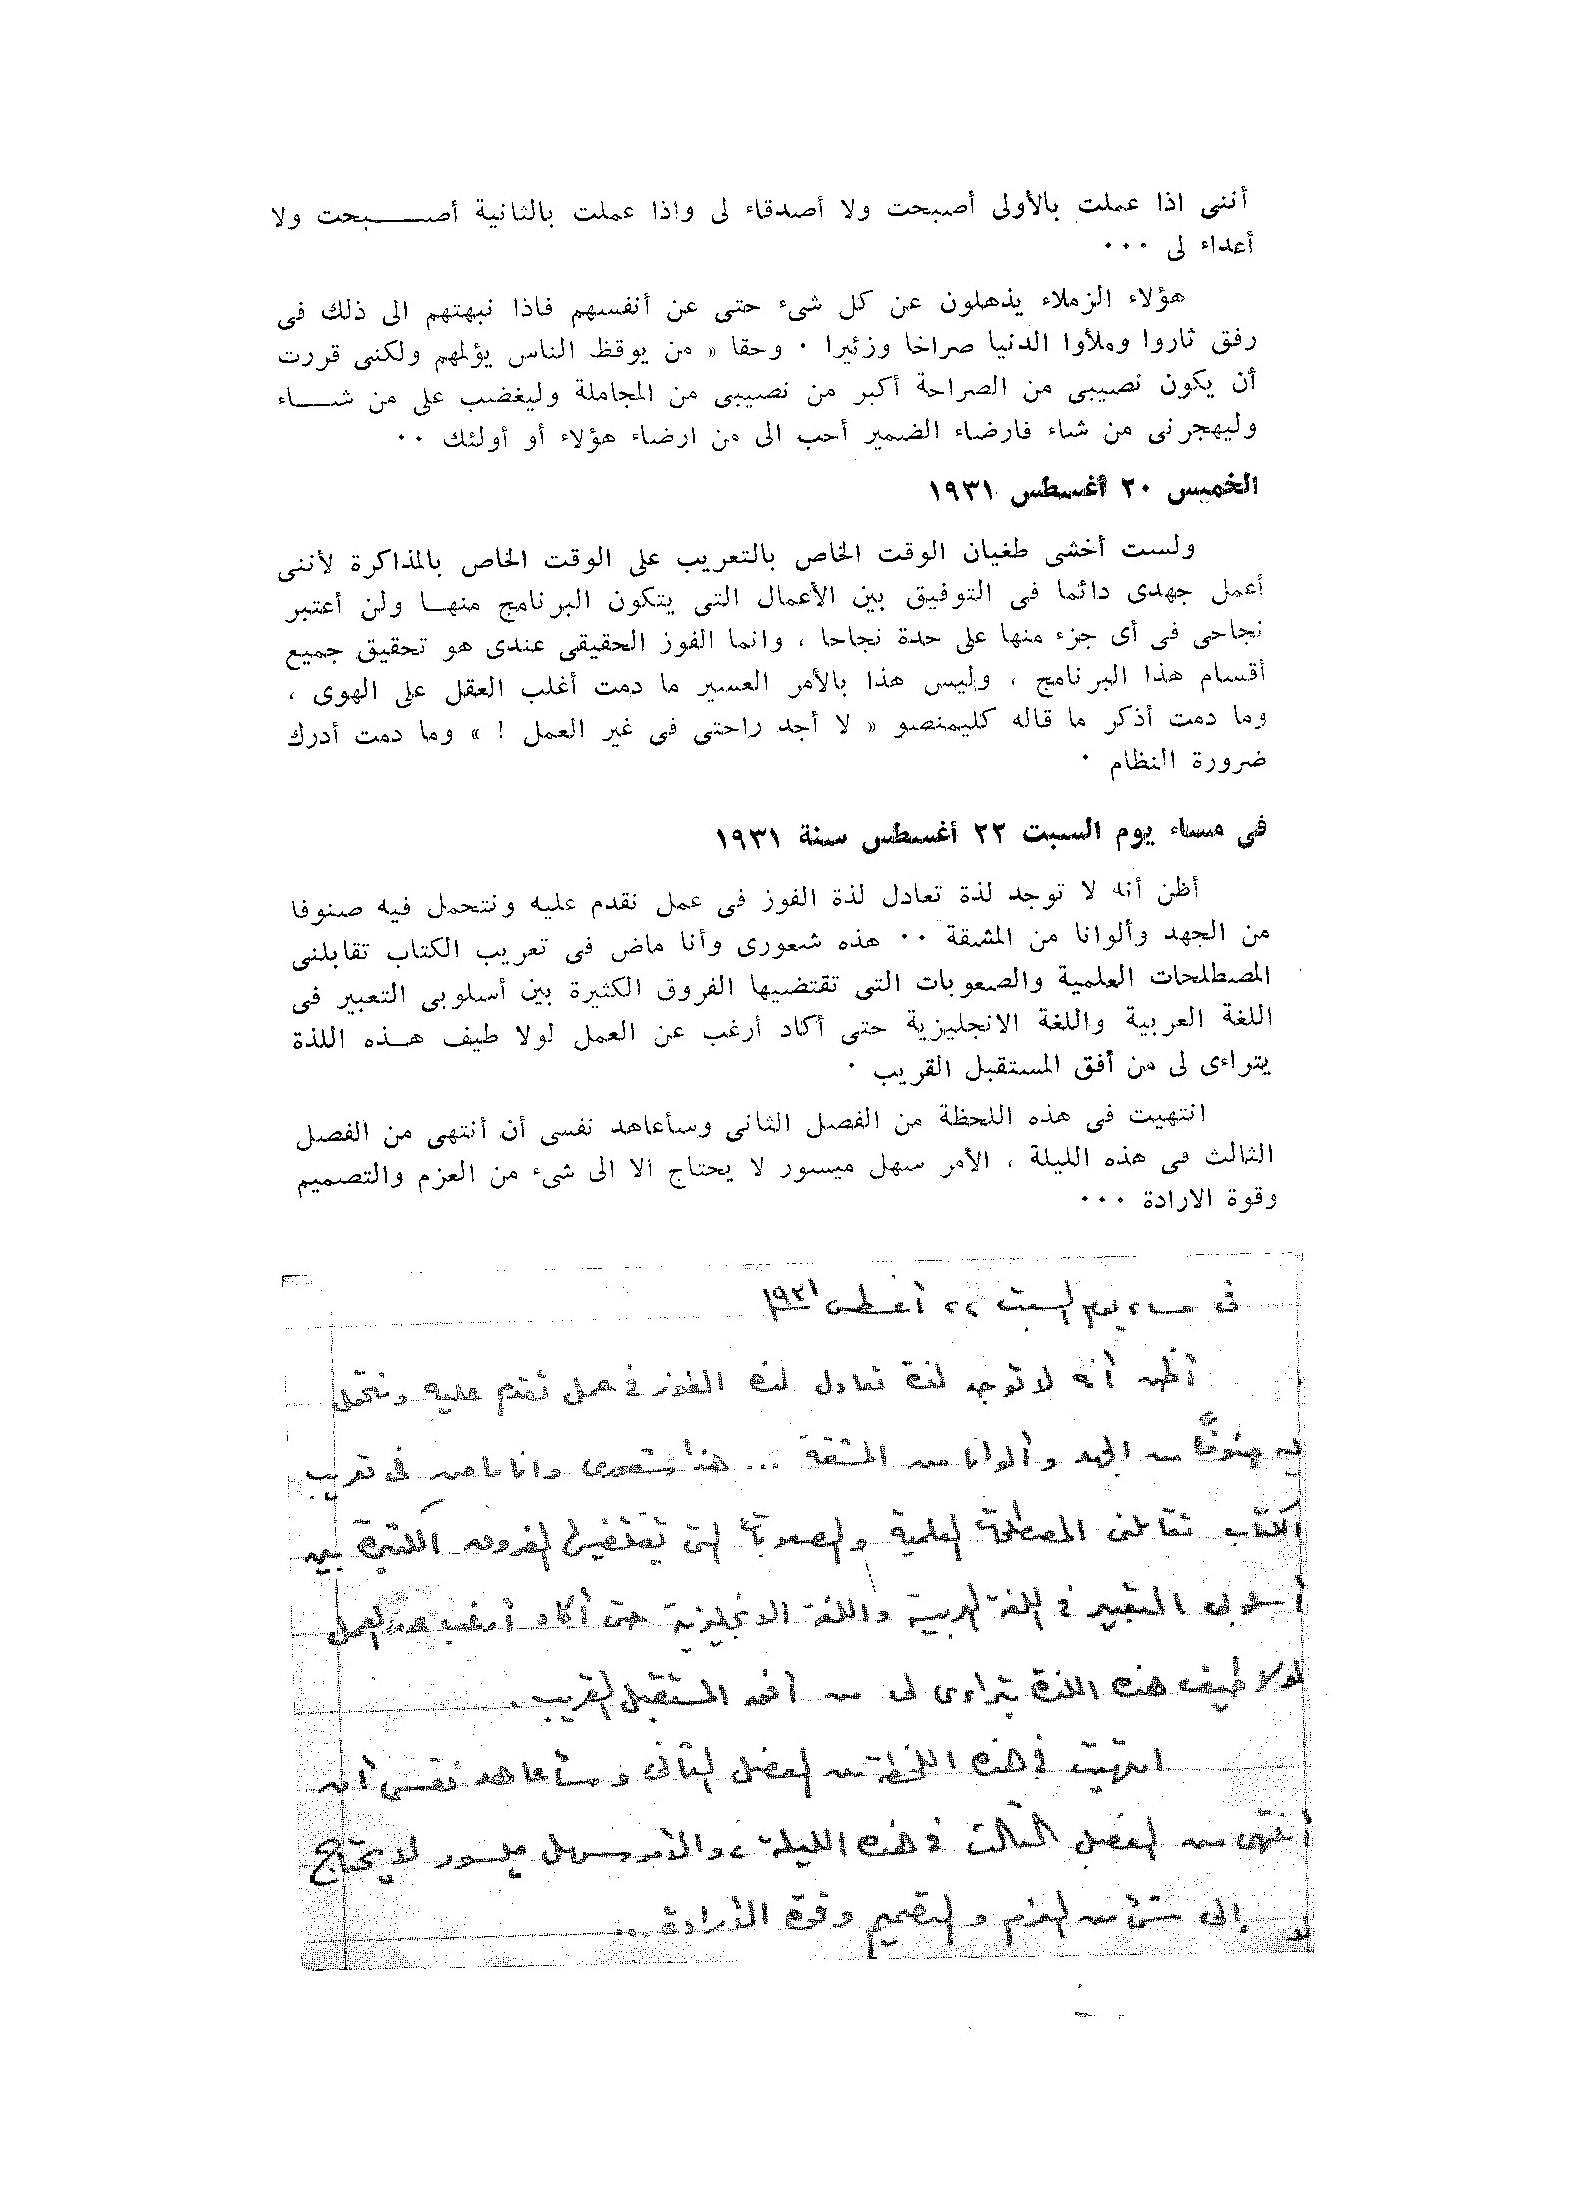 أننى اذا عملت بالأولى أصبحت ولا أصدقاء لى واذا عملت بالثانية أصبحت ولا
أعداء لى ٠٠٠
هؤلاء الزملاء يذهلون عن كل شىء حتى عن أنفسهم فاذا نبهتهم الى ذلك فى
رفق ثاروا وملأوا الدنيا صراخا وزئيرا ٠ وحقا « من يوقظ الناس يؤلمهم ولكنى قررت
أن يكون نصيبى من الصراحة أكبر من نصيبى من المجاملة وليغضب على من شاء
وليهجرنى من شاء فارضاء الضمير أحب الى من ارضاء هؤلاء أو أولئك ٠٠
الخميس ٢٠ أغسطس ١٩٣١
ولست أخشى طغيان الوقت الخاص بالتعريب على الوقت الخاص بالمذاكرة لأننى
أعمل جهدى دائما فى التوفيق بين الأعمال التى يتكون البرنامج منها ولن أعتبر
نجاحى فى أى جزء منها على حدة نجاحا ، وانما الفوز الحقيقى عندى هو تحقيق جميع
أقسام هذا البرنامج ، وليس هذا بالأمر العسير ما دمت أغلب العقل على الهوى ،
وما دمت أذكر ما قاله كليمنصو « لا أجد راحتى فى غير العمل ! » وما دمت أدرك
ضرورة النظام ٠
فى مساء يوم السبت ٢٢ أغسطس سنة ١٩٣١
أظن أنه لا توجد لذة تعادل لذة الفوز فى عمل نقدم عليه ونتحمل فيه صنوفا
من الجهد وألوانا من المشقة ٠٠ هذه شعورى وأنا ماض فى تعريب الكتاب تقابلنى
المصطلحات العلمية والصعوبات التى تقتضيها الفروق الكثيرة بين أسلوبى التعبير فى
اللغة العربية واللغة الانجليزية حتى أكاد أرغب عن العمل لولا طيف هذه اللذة
يتراءى لى من أفق المستقبل القريب ٠
انتهيت فى هذه اللحظة من الفصل الثانى وسأعاهد نفسى أن أنتهى من الفصل
الثالث فى هذه الليلة ، الأمر سهل ميسور لا يحتاج الا الى شىء من العزم والتصميم
وقوة الارادة ٠٠٠
فى مساء يوم السبت ٢٢ أغسطس ١٩٣١
أظن أنه لا توجد لذة تعادل لذة الفوز فى عمل نقدم عليه ونتحمل
فيه صنوفًا من الجهد وألوانا من المشقة ... هذا شعورى وانا ماض فى تعريب
الكتاب تقابلنى المصطلحات العلمية والصعوبات التى تقتضيها الفروق الكثيرة بين
أسلوبى التعبير فى اللغة العربية واللغة الانجليزية حتى أكاد أرغب عن العمل
لولا طيف هذه اللذة يتراءى لى من أفق المستقبل القريب .
انتهيت فى هذه اللحظة من الفصل الثانى وسأعاهد نفسى أن
أنتهى من الفصل الثالث فى هذه الليلة ، والأمر سهل ميسور لا يحتاج
إلا إلى شىء من العزم والتصميم وقوة الأرادة ...